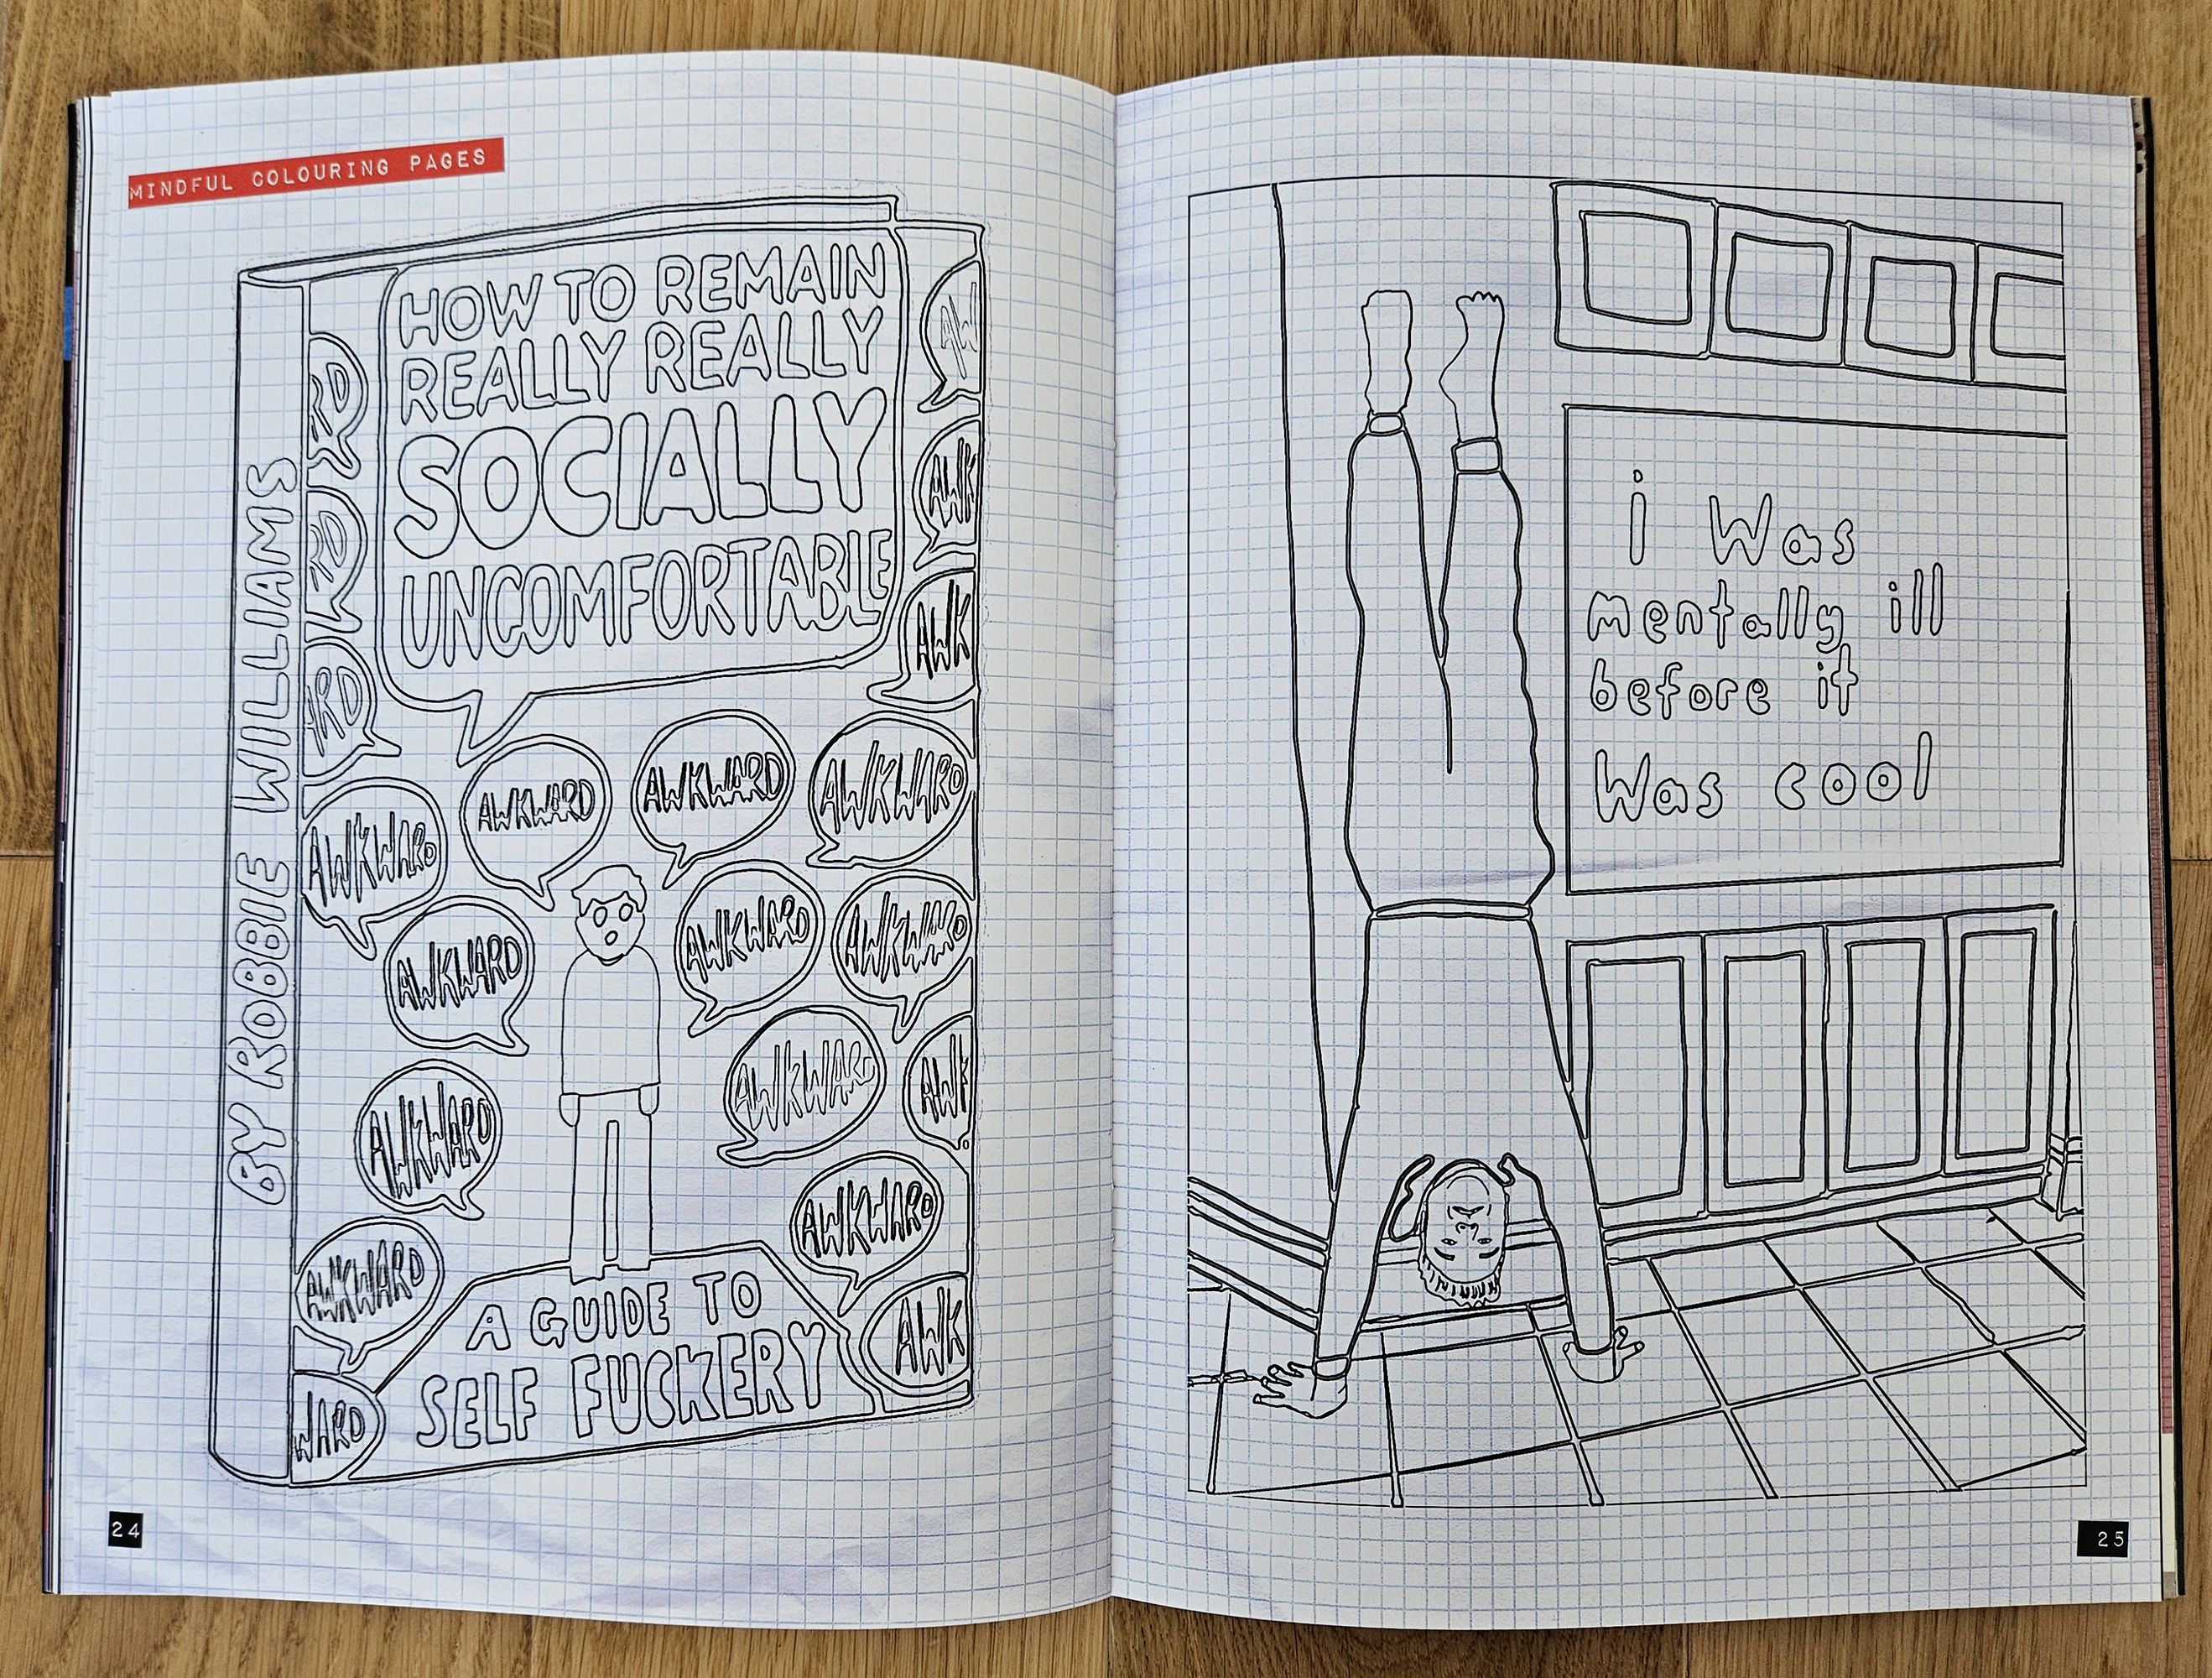 MINDFUL COLOURING PAGES
BY ROBBIE WILLIAMS
HOW TO REMAIN
REALLY REALLY
SOCIALLY
UNCOMFORTABLE
AW
RD
AWK
RD
AWK
ARD
AWKWARD
AWKWARD
AWKWARD
AWKWARD
AWKWARD
AWKWARD
AWKWARD
AWKWARD
AWK
AWKWARD
AWKWARD
AWKWARD
AWK
WARD
A GUIDE TO
SELF FUCKERY
24
i Was
mentally ill
before it
Was cool
25